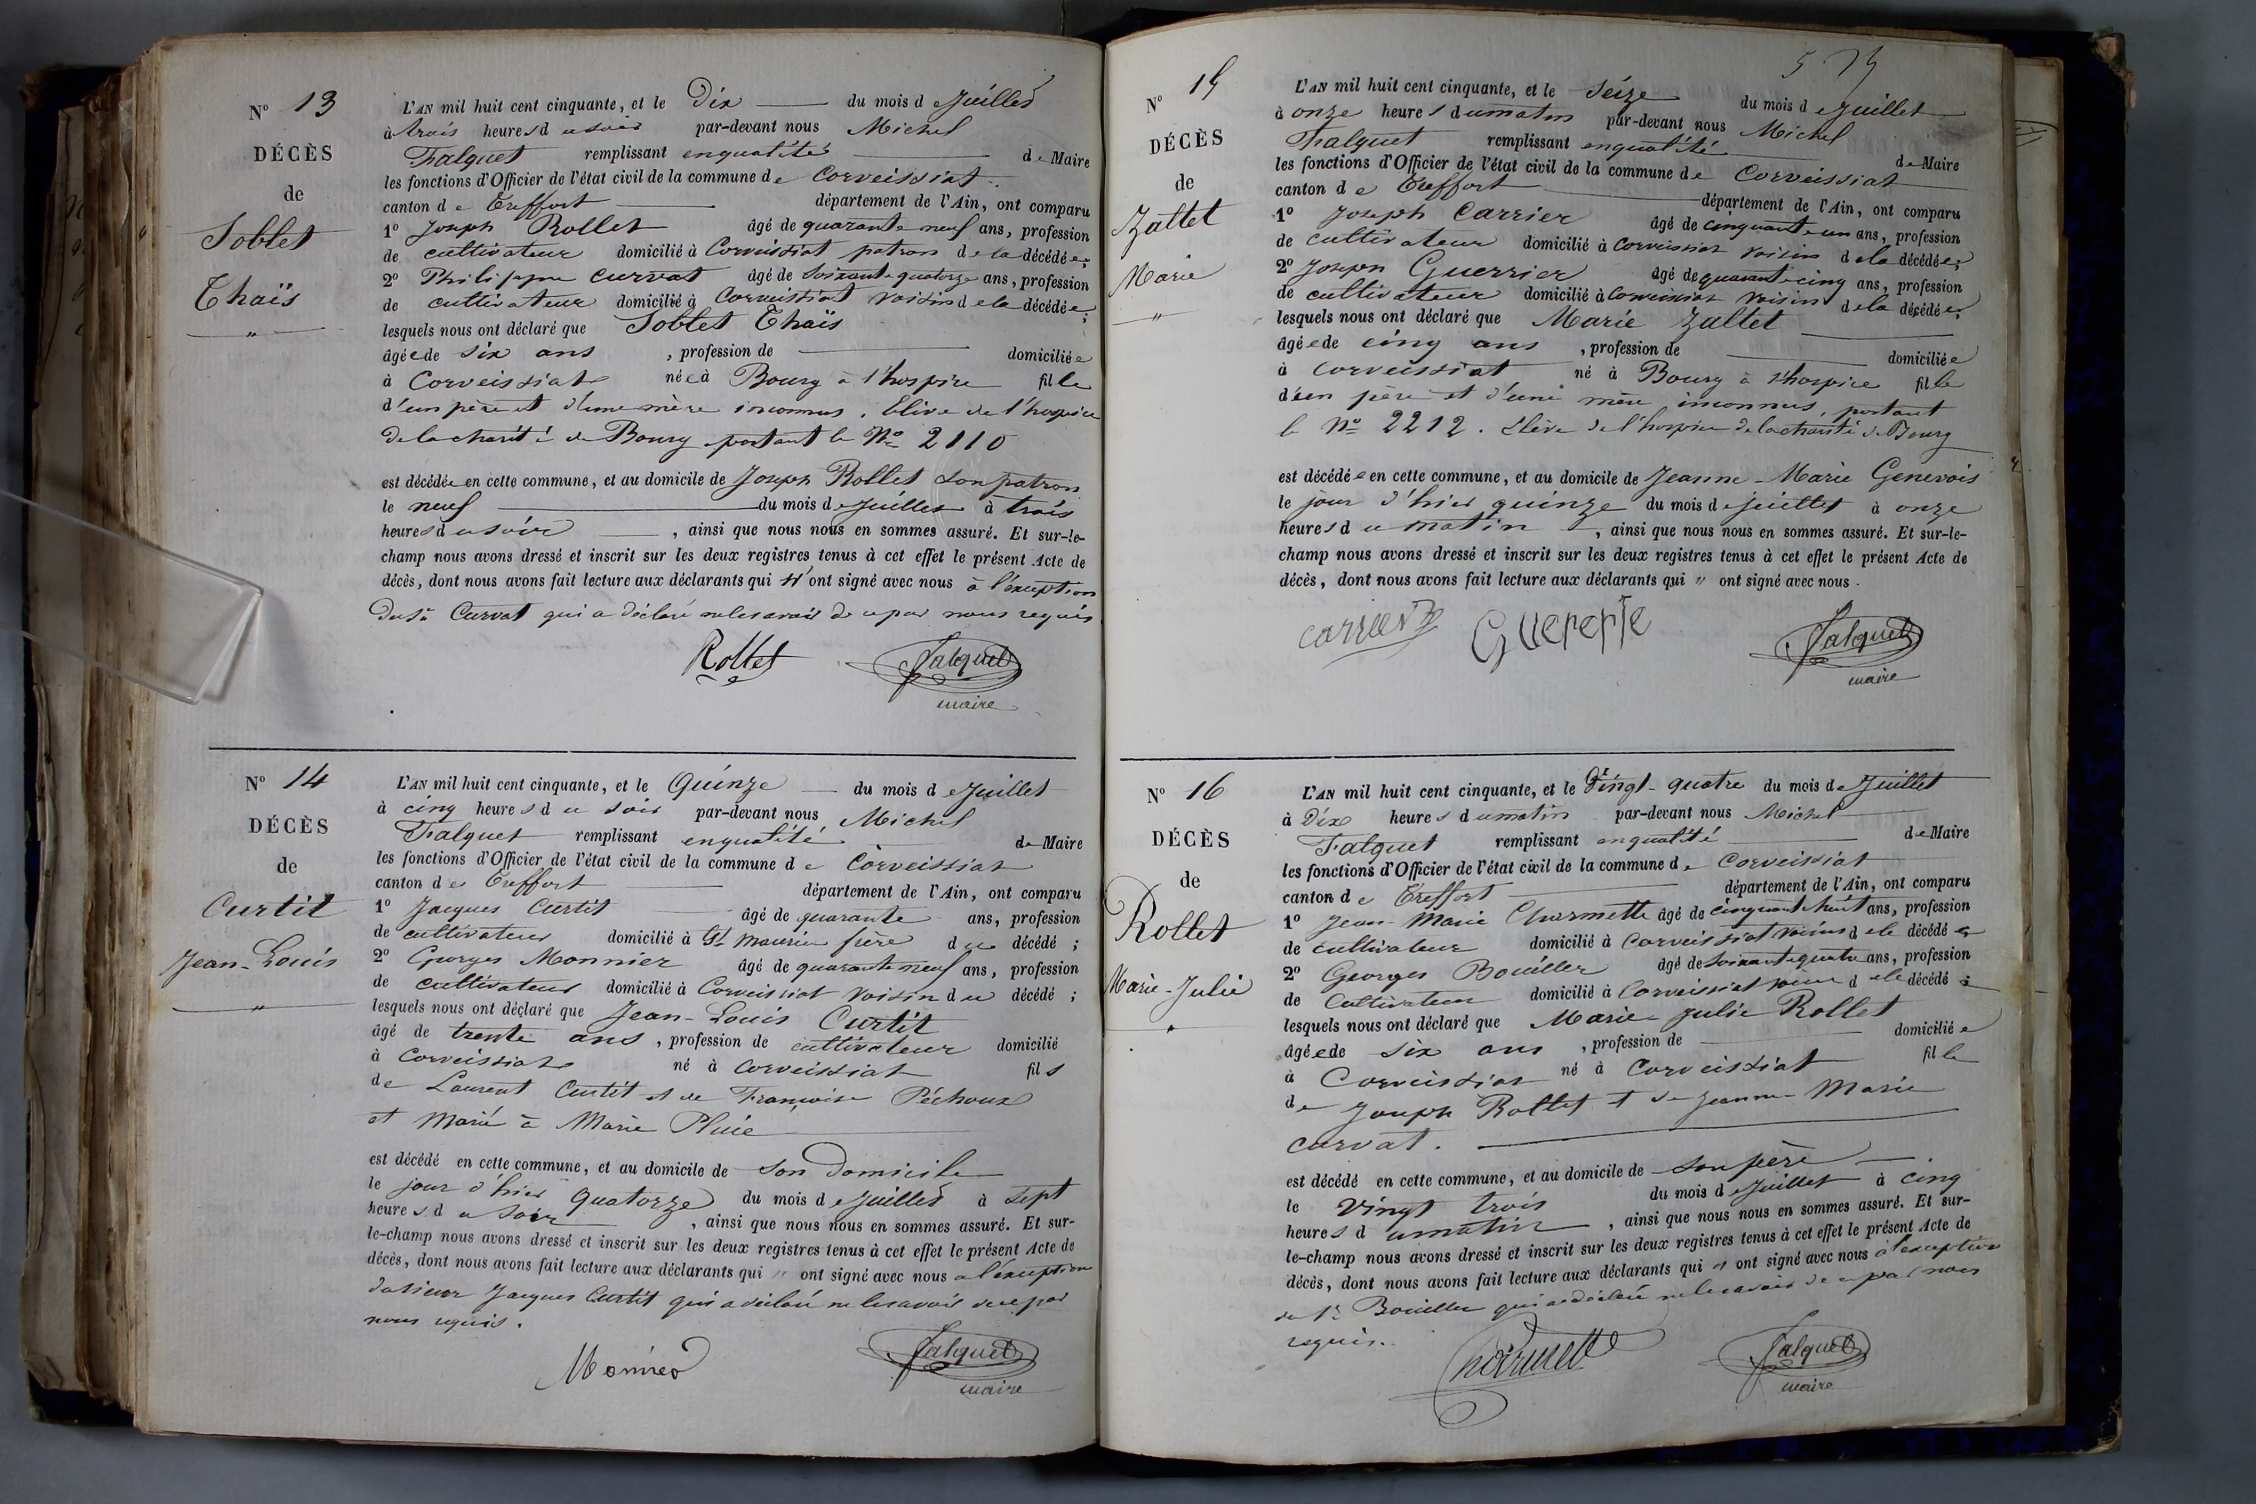 N° 13
DÉCÈS
de
Soblet
Thaïs
L'AN mil huit cent cinquante, et le Dix du mois de Juillet
à trois heures du soir par-devant nous Michel
Falquet remplissant en qualité de Maire
les fonctions d'Officier de l'état civil de la commune de Corveissiat
canton de Treffort département de l'Ain, ont comparu
1° Joseph Rollet âgé de quarante neuf ans, profession
de cultivateur domicilié à Corveissiat patron de la décédée;
2° Philippe Curvat âgé de soixante quatorze ans, profession
de cultivateur domicilié à Corveissiat voisin de la décédée;
lesquels nous ont déclaré que Soblet Thaïs
âgée de six ans, profession de domiciliée
à Corveissiat née à Bourg à l'hospice fille
d'un père et d'une mère inconnus. Elive de l'hospice
de la charité de Bourg portant le N° 2110
est décédée en cette commune, et au domicile de Joseph Rollet son patron
le neuf du mois de Juillet à trois
heures du soir, ainsi que nous nous en sommes assuré. Et sur-le-
champ nous avons dressé et inscrit sur les deux registres tenus à cet effet le présent Acte de
décès, dont nous avons fait lecture aux déclarants qui ont signé avec nous à l'exception
du sr Curvat qui a déclaré ne le savoir de ce par nous requis
Rollet Falquet
maire
N° 14
DÉCÈS
de
Curtit
Jean-Louis
L'AN mil huit cent cinquante, et le Quinze du mois de Juillet
à cinq heures du soir par-devant nous Michel
Falquet remplissant en qualité de Maire
les fonctions d'Officier de l'état civil de la commune de Corveissiat
canton de Treffort département de l'Ain, ont comparu
1° Jacques Curtit âgé de quarante ans, profession
de cultivateur domicilié à St Maurice frère du décédé;
2° Georges Monnier âgé de quarante neuf ans, profession
de cultivateur domicilié à Corveissiat voisin du décédé;
lesquels nous ont déclaré que Jean-Louis Curtit
âgé de trente ans, profession de cultivateur domicilié
à Corveissiat né à Corveissiat fils
de Laurent Curtit et de Françoise Péchoux
et Marié à Marie Pluie
est décédé en cette commune, et au domicile de son Domicile
le jour d'hier quatorze du mois de Juillet à sept
heures du soir, ainsi que nous nous en sommes assuré. Et sur-
le-champ nous avons dressé et inscrit sur les deux registres tenus à cet effet le présent Acte de
décès, dont nous avons fait lecture aux déclarants qui " ont signé avec nous a l'exception
du sieur Jacques Curtit qui a déclaré ne le savoir de ce par
nous requis.
Falquet
maire
573
N° 15
DÉCÈS
de
Zaltet
Marie
L'AN mil huit cent cinquante, et le Seize du mois de Juillet
à onze heures du matin par-devant nous Michel
Falquet remplissant en qualité de Maire
les fonctions d'Officier de l'état civil de la commune de Corveissiat
canton de Treffort département de l'Ain, ont comparu
1° Joseph Carrier âgé de cinquante un ans, profession
de cultivateur domicilié à Corveissiat voisin de la décédée;
2° Joseph Guerrier âgé de quarante cinq ans, profession
de cultivateur domicilié à Corveissiat voisin de la décédée;
lesquels nous ont déclaré que Marie Zaltet
âgée de cinq ans, profession de domiciliée
à Corveissiat né à Bourg à l'hospice fille
d'un père et d'une mère inconnus, portant
le N° 2212. Elève de l'hospice de la charité de Bourg
est décédée en cette commune, et au domicile de Jeanne-Marie Genevois
le jour d'hier quinze du mois de juillet à onze
heures du matin, ainsi que nous nous en sommes assuré. Et sur-le-
champ nous avons dressé et inscrit sur les deux registres tenus à cet effet le présent Acte de
décès, dont nous avons fait lecture aux déclarants qui " ont signé avec nous.
Falquet
maire
N° 16
DÉCÈS
de
Rollet
Marie-Julie
L'AN mil huit cent cinquante, et le Vingt-quatre du mois de Juillet
à Dix heures du matin par-devant nous Michel
Falquet remplissant en qualité de Maire
les fonctions d'Officier de l'état civil de la commune de Corveissiat
canton de Treffort département de l'Ain, ont comparu
1° Jean-Marie Charmette âgé de cinquante huit ans, profession
de cultivateur domicilié à Corveissiat voisin de la décédée
2° Georges Bouiller âgé de soixante quatre ans, profession
de Cultivateur domicilié à Corveissiat voisin de la décédé;
lesquels nous ont déclaré que Marie-Julie Rollet
âgée de six ans, profession de domiciliée
à Corveissiat né à Corveissiat fille
de Joseph Rollet et de Jeanne-Marie
Curvat.
est décédé en cette commune, et au domicile de son père
le vingt trois du mois de Juillet à cinq
heures du matin, ainsi que nous nous en sommes assuré. Et sur-
le-champ nous avons dressé et inscrit sur les deux registres tenus à cet effet le présent Acte de
décès, dont nous avons fait lecture aux déclarants qui " ont signé avec nous à l'exception
du sr Bouiller qui a déclaré ne le savoir de ce par nous
requis.
Charmette Falquet
maire